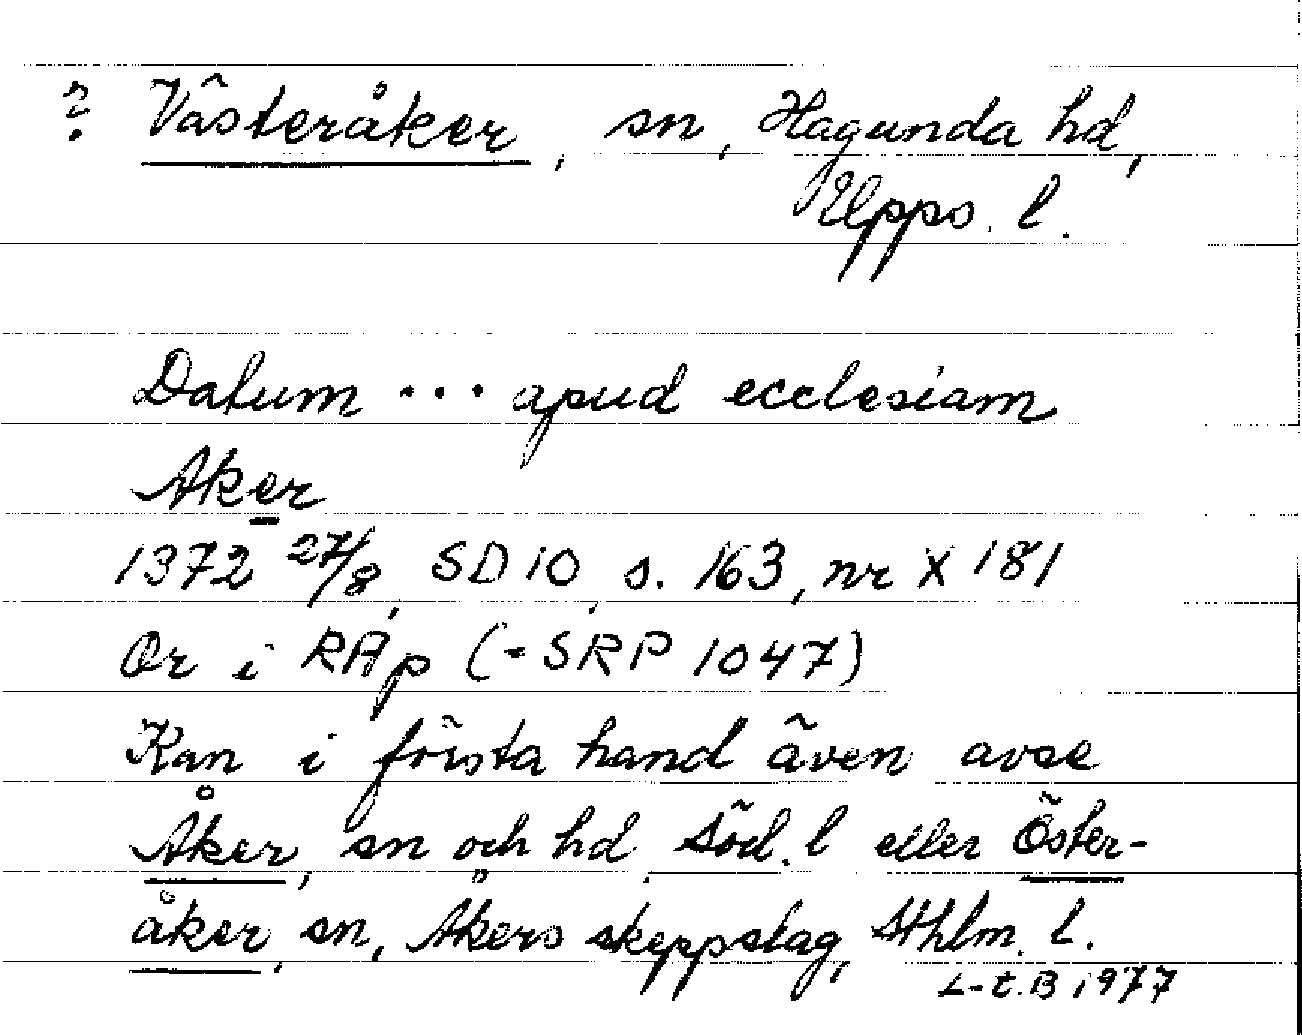 ? Västeråker, sn, Hagunda hd,
Upps. l.
Datum ... apud ecclesiam
Aker
1372 27/8, SD 10, s. 163, nr X 181
Or i RAp (-SRP 1047)
Kan i första hand även avse
Åker, sn och hd, Söd. l eller Öster-
åker, sn, Åkers skeppslag, Sthlm. l.
L-t.B 1977